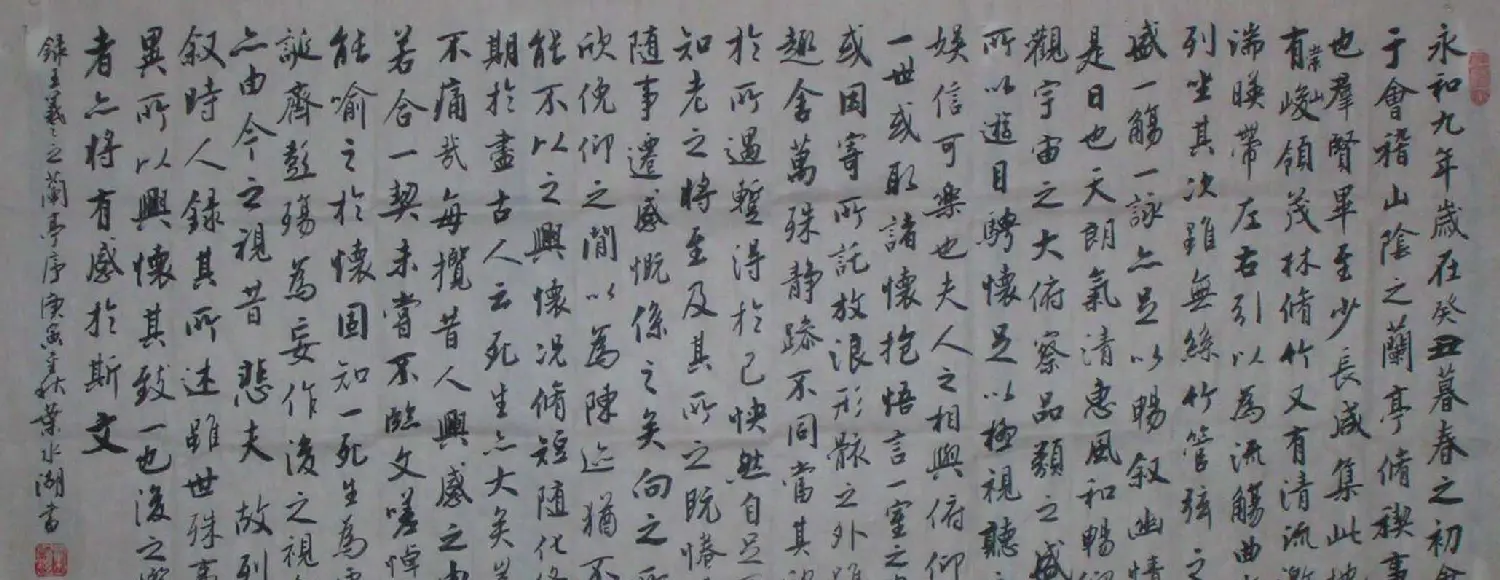 永和九年歲在癸丑暮春之初會
于會稽山陰之蘭亭脩稧事
也羣賢畢至少長咸集此地
有崇山峻領茂林脩竹又有清流激
湍暎帶左右引以為流觴曲
列坐其次雖無絲竹管弦之
盛一觴一詠亦足以暢叙幽情
是日也天朗氣清惠風和暢仰
觀宇宙之大俯察品類之盛
所以遊目騁懷足以極視聽
娛信可樂也夫人之相與俯仰
一世或取諸懷抱悟言一室之
或因寄所託放浪形骸之外雖
趣舍萬殊静躁不同當其欣
於所遇蹔得於己怏然自足
知老之將至及其所之既惓
随事遷感慨係之矣向之所
欣俛仰之閒以為陳迹猶不
能不以之興懷況脩短随化
期於盡古人云死生亦大矣豈
不痛哉每攬昔人興感之由
若合一契未嘗不臨文嗟悼
能喻之於懷固知一死生為虛
誕齊彭殤為妄作後之視
亦由今之視昔 悲夫 故列
叙時人録其所述雖世殊事
異所以興懷其致一也後之
者亦將有感於斯文
録王羲之之蘭亭序庚寅秋葉水湖書